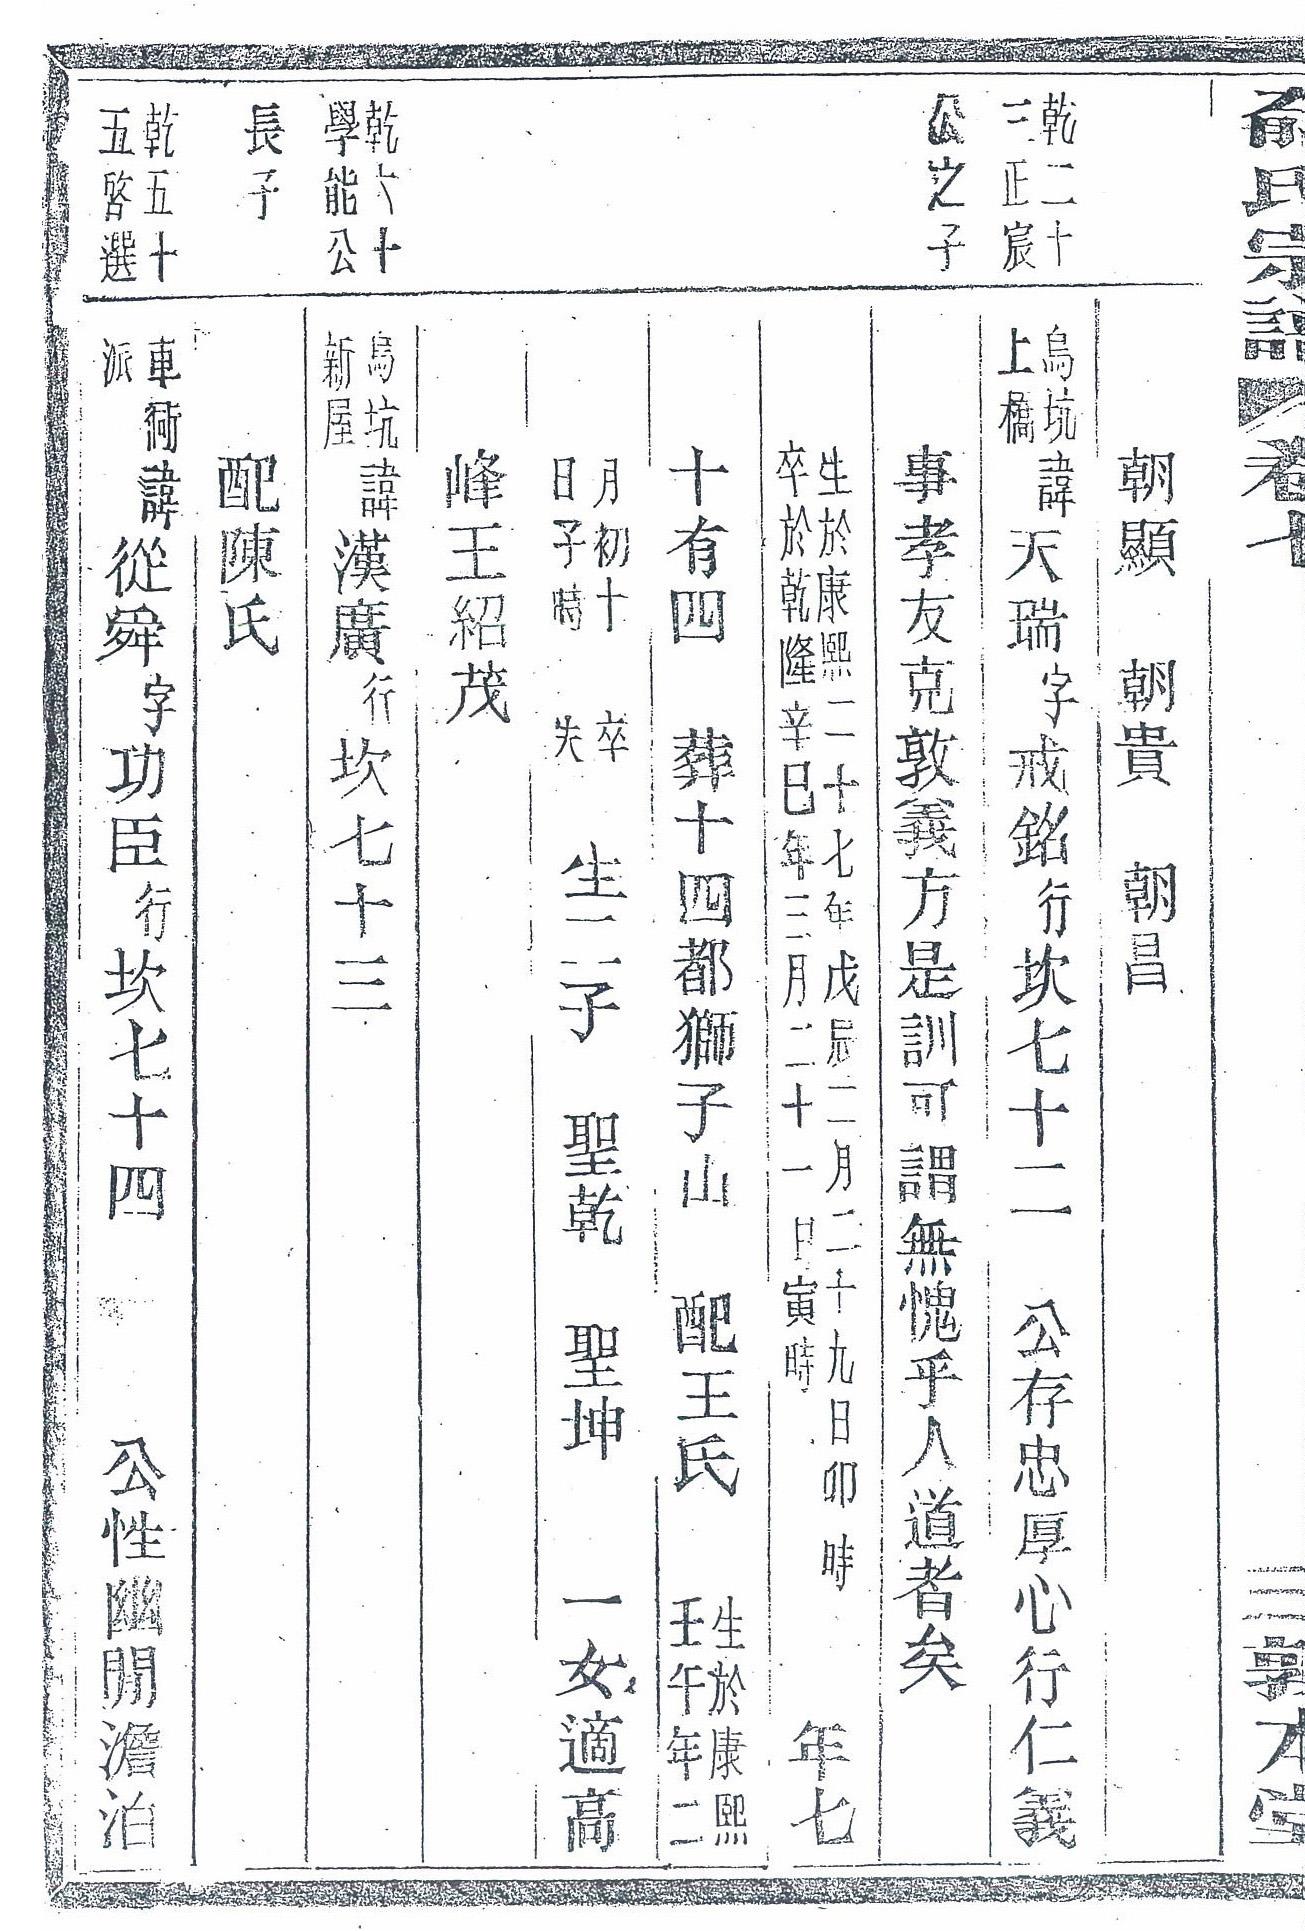 氏宗譜
卷七
敦本堂
朝顯 朝貴 朝昌
乾二十
三正宸
烏坑
上橋
諱天瑞字戒銘行坎七十二 公存忠厚心行仁義
公之子
事孝友克敦義方是訓可謂無愧乎人道者矣
生於康熙二十七年戊辰二月二十九日卯時
卒於乾隆辛巳年三月二十一日寅時
年七
十有四 葬十四都獅子山 配王氏
生於康熙
壬午年二
月初十
日子時
卒
失
生二子 聖乾 聖坤 一女適高
峰王紹茂
乾六十
學能公
烏坑
新屋
諱漢廣行坎七十三
長子
配陳氏
乾五十
五啓選
車衕
派
諱從舜字功臣行坎七十四 公性幽閒澹泊